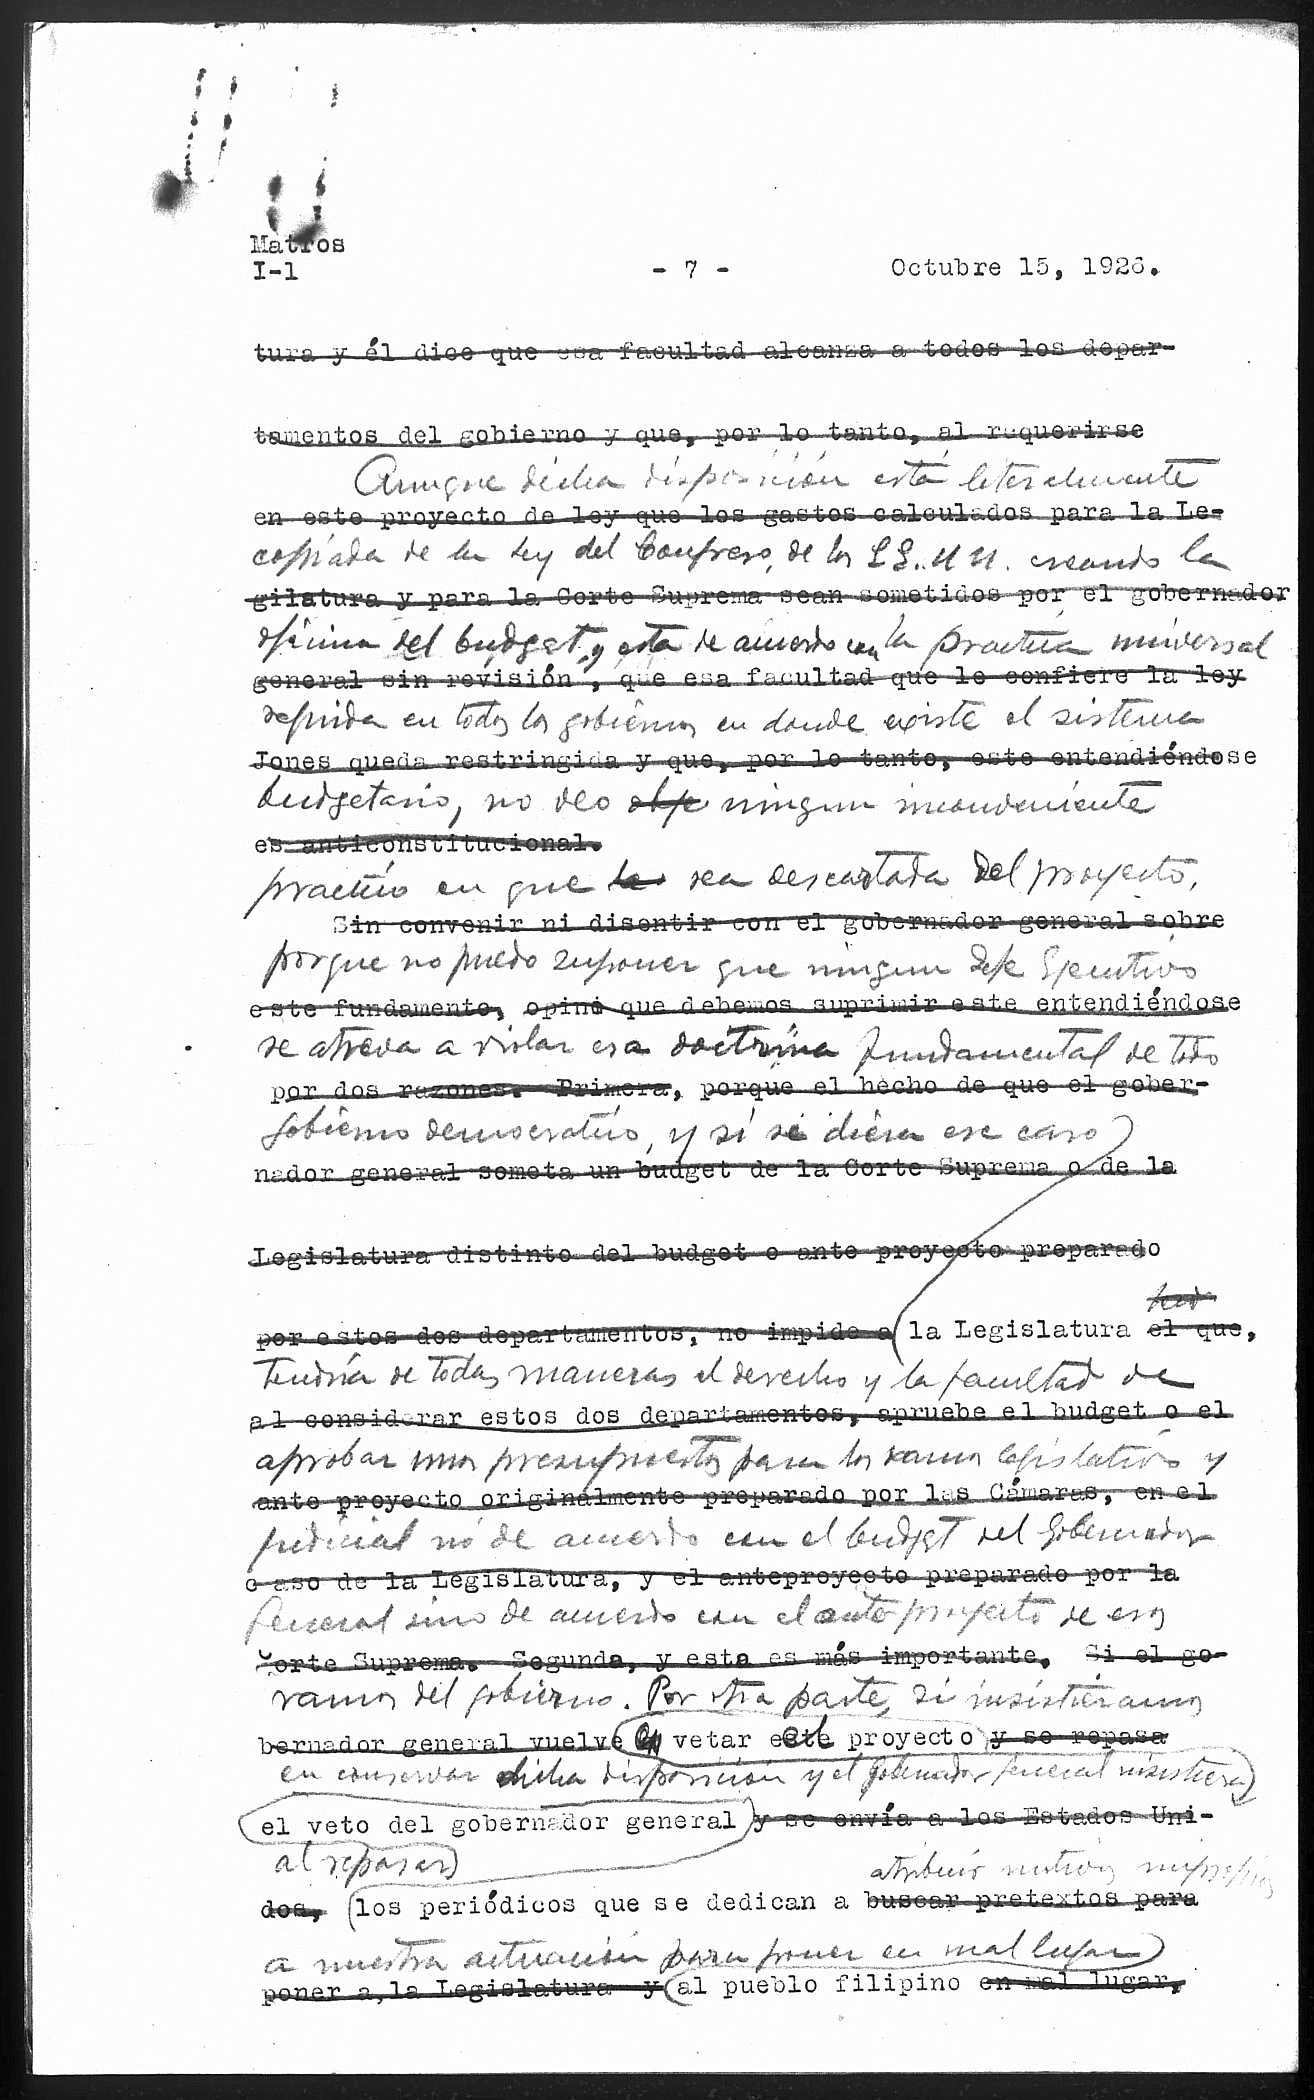 Matros
I-1
- 7 -
Octubre 15, 1926.
tura y él dice que esa facultad alcanza a todos los depar-
tamentos del gobierno y que, por lo tanto, al requerirse
Aunque dicha disposición está literalmente
en este proyecto de ley que los gastos calculados para la Le-
copiada de la Ley del Congreso, de los EE. UU. creando la
gilatura y para la Corte Suprema sean sometidos por el gobernador
oficina del budget, y esta de acuerdo con la practica universal
general sin revisión, que esa facultad que le confiere la ley
seguida en todos los gobiernos en donde existe el sistema
Jones queda restringida y que, por lo tanto, este entendiéndose
budgetario, no veo ningun inconveniente
es anticonstitucional.
practico en que la sea descartada del proyecto,
Sin convenir ni disentir con el gobernador general sobre
porque no puedo suponer que ningun Jefe Ejecutivo
este fundamento, opino que debemos suprimir este entendiéndose
se atreva a violar esa doctrina fundamental de todo
por dos razones. Primera, porque el hecho de que el gober-
gobierno democratico, y si se diera ese caso
nador general someta un budget de la Corte Suprema o de la
Legislatura distinto del budget o ante proyecto preparado
por estos dos departamentos, no impide a la Legislatura el que,
tendría de todas maneras el derecho y la facultad de
al considerar estos dos departamentos, apruebe el budget o el
aprobar unos presupuestos para los ramos legislativo y
ante proyecto originalmente preparado por las Cámaras, en el
judicial no de acuerdo con el budget del Gobernador
caso de la Legislatura, y el anteproyecto preparado por la
General sino de acuerdo con el ante proyecto de esos
Corte Suprema. Segunda, y esta es más importante. Si el go-
ramos del gobierno. Por otra parte, si insistieramos
bernador general vuelve a vetar este proyecto y se repasa
en conservar dicha disposición y el gobernador general insistiera
el veto del gobernador general y se envía a los Estados Uni-
al repasar
atribuir motivos
dos, los periódicos que se dedican a buscar pretextos para
a nuestra actuación para poner en mal lugar
poner a la Legislatura y al pueblo filipino en mal lugar,